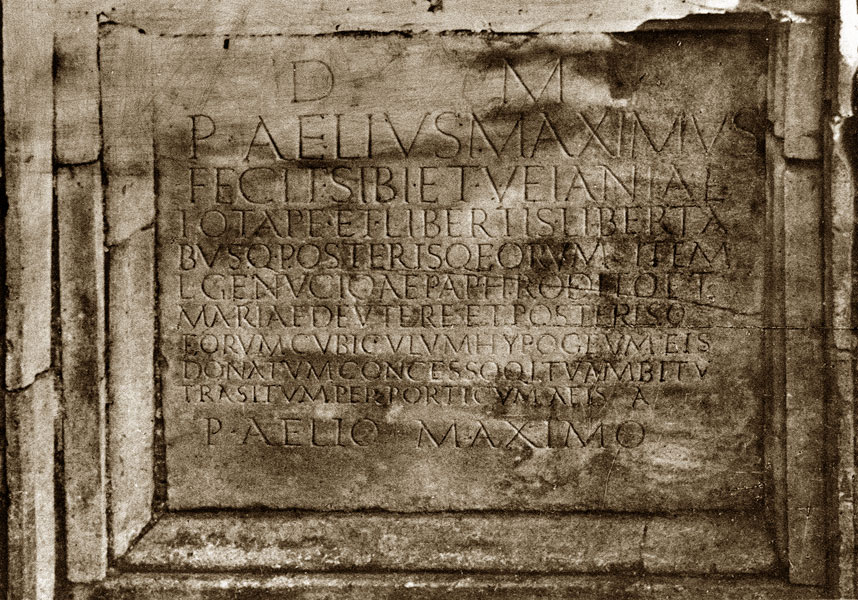 D M
P·AELIVS·MAXIMVS
FECIT·SIBI·ET·VEIANIAE
IOTAPE·ET·LIBERTIS LIBERTA
BVSQ·POSTERISQ·EORVM·ITEM
L·GENVCIO AEPAPHRODITO ET
MARIAE DEVTERE·ET·POSTERISQ
EORVM CVBICVLVM HYPOGEVM EIS
DONATVM CONCESSOQ ITVM MBITV
TRASITVM PER PORTICVM AEIS A
P·AELIO MAXIMO